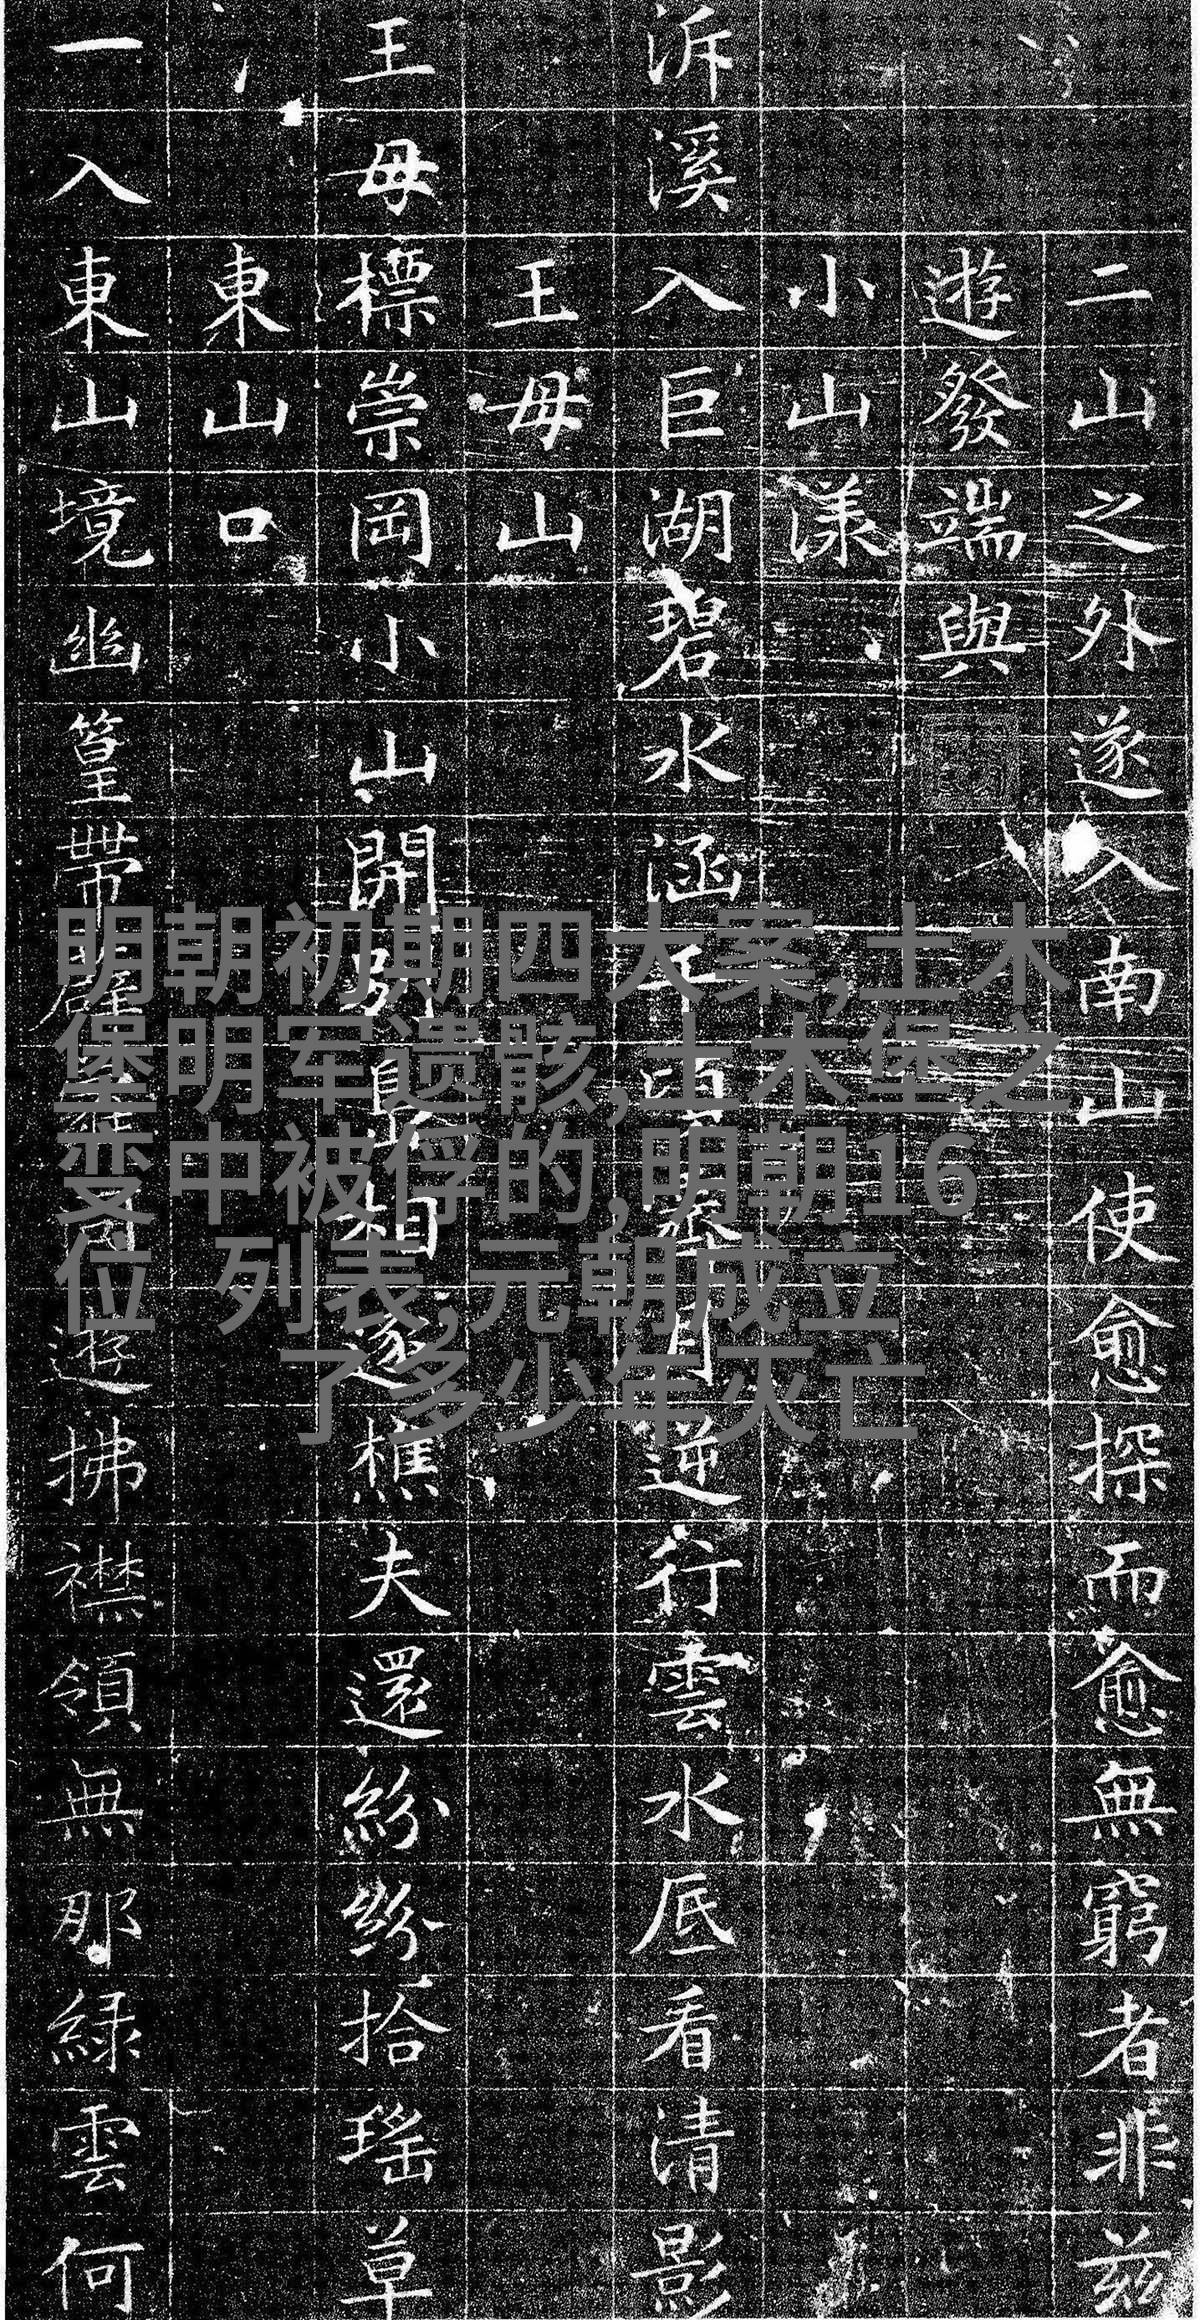 二山之外遂入南山使愈探而愈無窮者非茲
遊發端與
小山漾
泝溪入巨湖碧水涵月逆行雲水底看清影
王毋山
王毋標崇岡小山開別相逐樵夫還紛紛拾瑤草
東山口
一入東山境幽篁帶薜遊拂襟領無那綠雲何
明朝初期四大案,土木
堡明军遗骸,土木堡之
变中被俘的,明朝16
位 列表,元朝成立
了多少年灭亡